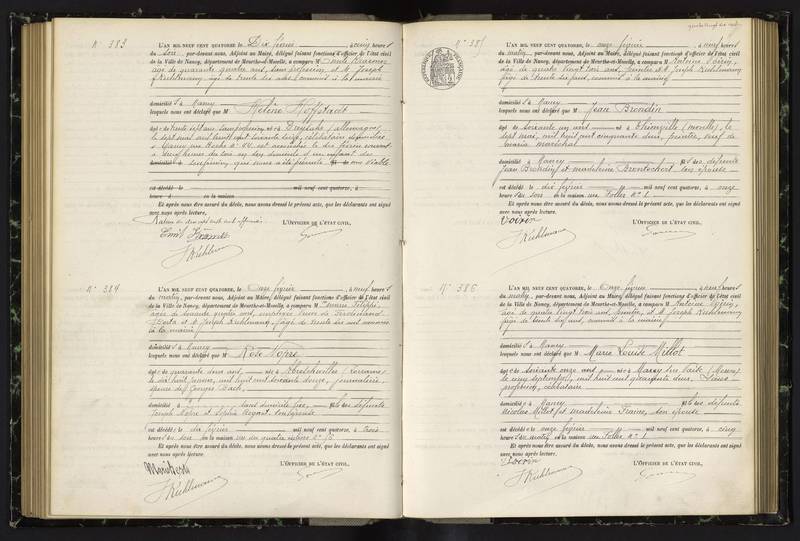 N° 383
L'AN MIL NEUF CENT QUATORZE, le Dix février, à cinq heures
du soir, par-devant nous, Adjoint au Maire, délégué faisant fonctions d'officier de l'état civil
de la Ville de Nancy, département de Meurthe-et-Moselle, a comparu M
âgé de quarante quatre ans, sans profession et M Joseph
Kuhlmann âgé de trente six ans commis à la mairie
domiciliés à Nancy
lesquels nous ont déclaré que M Hélène Hoffstadt
âgée de trente sept ans, sans profession née à (Allemagne)
le sept mai mil huit cent soixante seize, célibataire
est accouchée le dix février courant
à neuf heures du soir en son domicile d'un enfant du
sexe féminin, que nous a été présenté sans vie
est décédé le mil neuf cent quatorze, à
heure en la maison
Et après nous être assuré du décès, nous avons dressé le présent acte, que les déclarants ont signé
avec nous après lecture.
L'OFFICIER DE L'ÉTAT CIVIL,
Emil
J Kuhlmann
N° 384
L'AN MIL NEUF CENT QUATORZE, le Onze février, à neuf heures
du matin, par-devant nous, Adjoint au Maire, délégué faisant fonctions d'officier de l'état civil
de la Ville de Nancy, département de Meurthe-et-Moselle, a comparu M
et M Joseph Kuhlmann, âgé de trente six ans commis
à la mairie
domiciliés à Nancy
lesquels nous ont déclaré que M Rose Nopre
âgée de quarante deux ans, née à Abreschviller (Lorraine)
le dix huit janvier, mil huit cent soixante douze, journalière,
épouse de Georges Bach,
domiciliée à sans domicile fixe, fille des défunts
Joseph Nopre et Sophie
est décédée le dix février mil neuf cent quatorze, à trois
heures du soir en la maison rue des quatre églises n°
Et après nous être assuré du décès, nous avons dressé le présent acte, que les déclarants ont signé
avec nous après lecture.
L'OFFICIER DE L'ÉTAT CIVIL,
J Kuhlmann
N° 385
L'AN MIL NEUF CENT QUATORZE, le onze février, à neuf heures
du matin, par-devant nous, Adjoint au Maire, délégué faisant fonctions d'officier de l'état civil
de la Ville de Nancy, département de Meurthe-et-Moselle, a comparu M Antoine Voirin,
âgé de quatre vingt trois ans, peintre et M Joseph Kuhlmann
âgé de trente six ans, commis à la mairie
domiciliés à Nancy
lesquels nous ont déclaré que M Jean Brondin
âgé de soixante un ans né à Thionville (Moselle), le
sept mai, mil huit cent cinquante deux, peintre, veuf de
Maria Maréchal
domicilié à Nancy fils de défunts
Jean Brondin et Madeleine son épouse
est décédé le dix février mil neuf cent quatorze, à onze
heures du soir en la maison rue Folles n° 1
Et après nous être assuré du décès, nous avons dressé le présent acte, que les déclarants ont signé
avec nous après lecture.
L'OFFICIER DE L'ÉTAT CIVIL,
Voirin
J Kuhlmann
N° 386
L'AN MIL NEUF CENT QUATORZE, le Onze février, à neuf heures
du matin, par-devant nous, Adjoint au Maire, délégué faisant fonctions d'officier de l'état civil
de la Ville de Nancy, département de Meurthe-et-Moselle, a comparu M Antoine Voirin,
âgé de quatre vingt trois ans, peintre, et M Joseph Kuhlmann
âgé de trente six ans, commis à la mairie
domiciliés à Nancy
lesquels nous ont déclaré que M Marie Louise Millot
âgée de soixante onze ans née à (Meuse)
le cinq septembre, mil huit cent quarante deux, sans
profession, célibataire
domiciliée à Nancy fille des défunts
Nicolas Millot et Madeleine France, son épouse
est décédée le onze février mil neuf cent quatorze, à cinq
heures du matin en la maison rue Folles n° 1
Et après nous être assuré du décès, nous avons dressé le présent acte, que les déclarants ont signé
avec nous après lecture.
L'OFFICIER DE L'ÉTAT CIVIL,
Voirin
J Kuhlmann